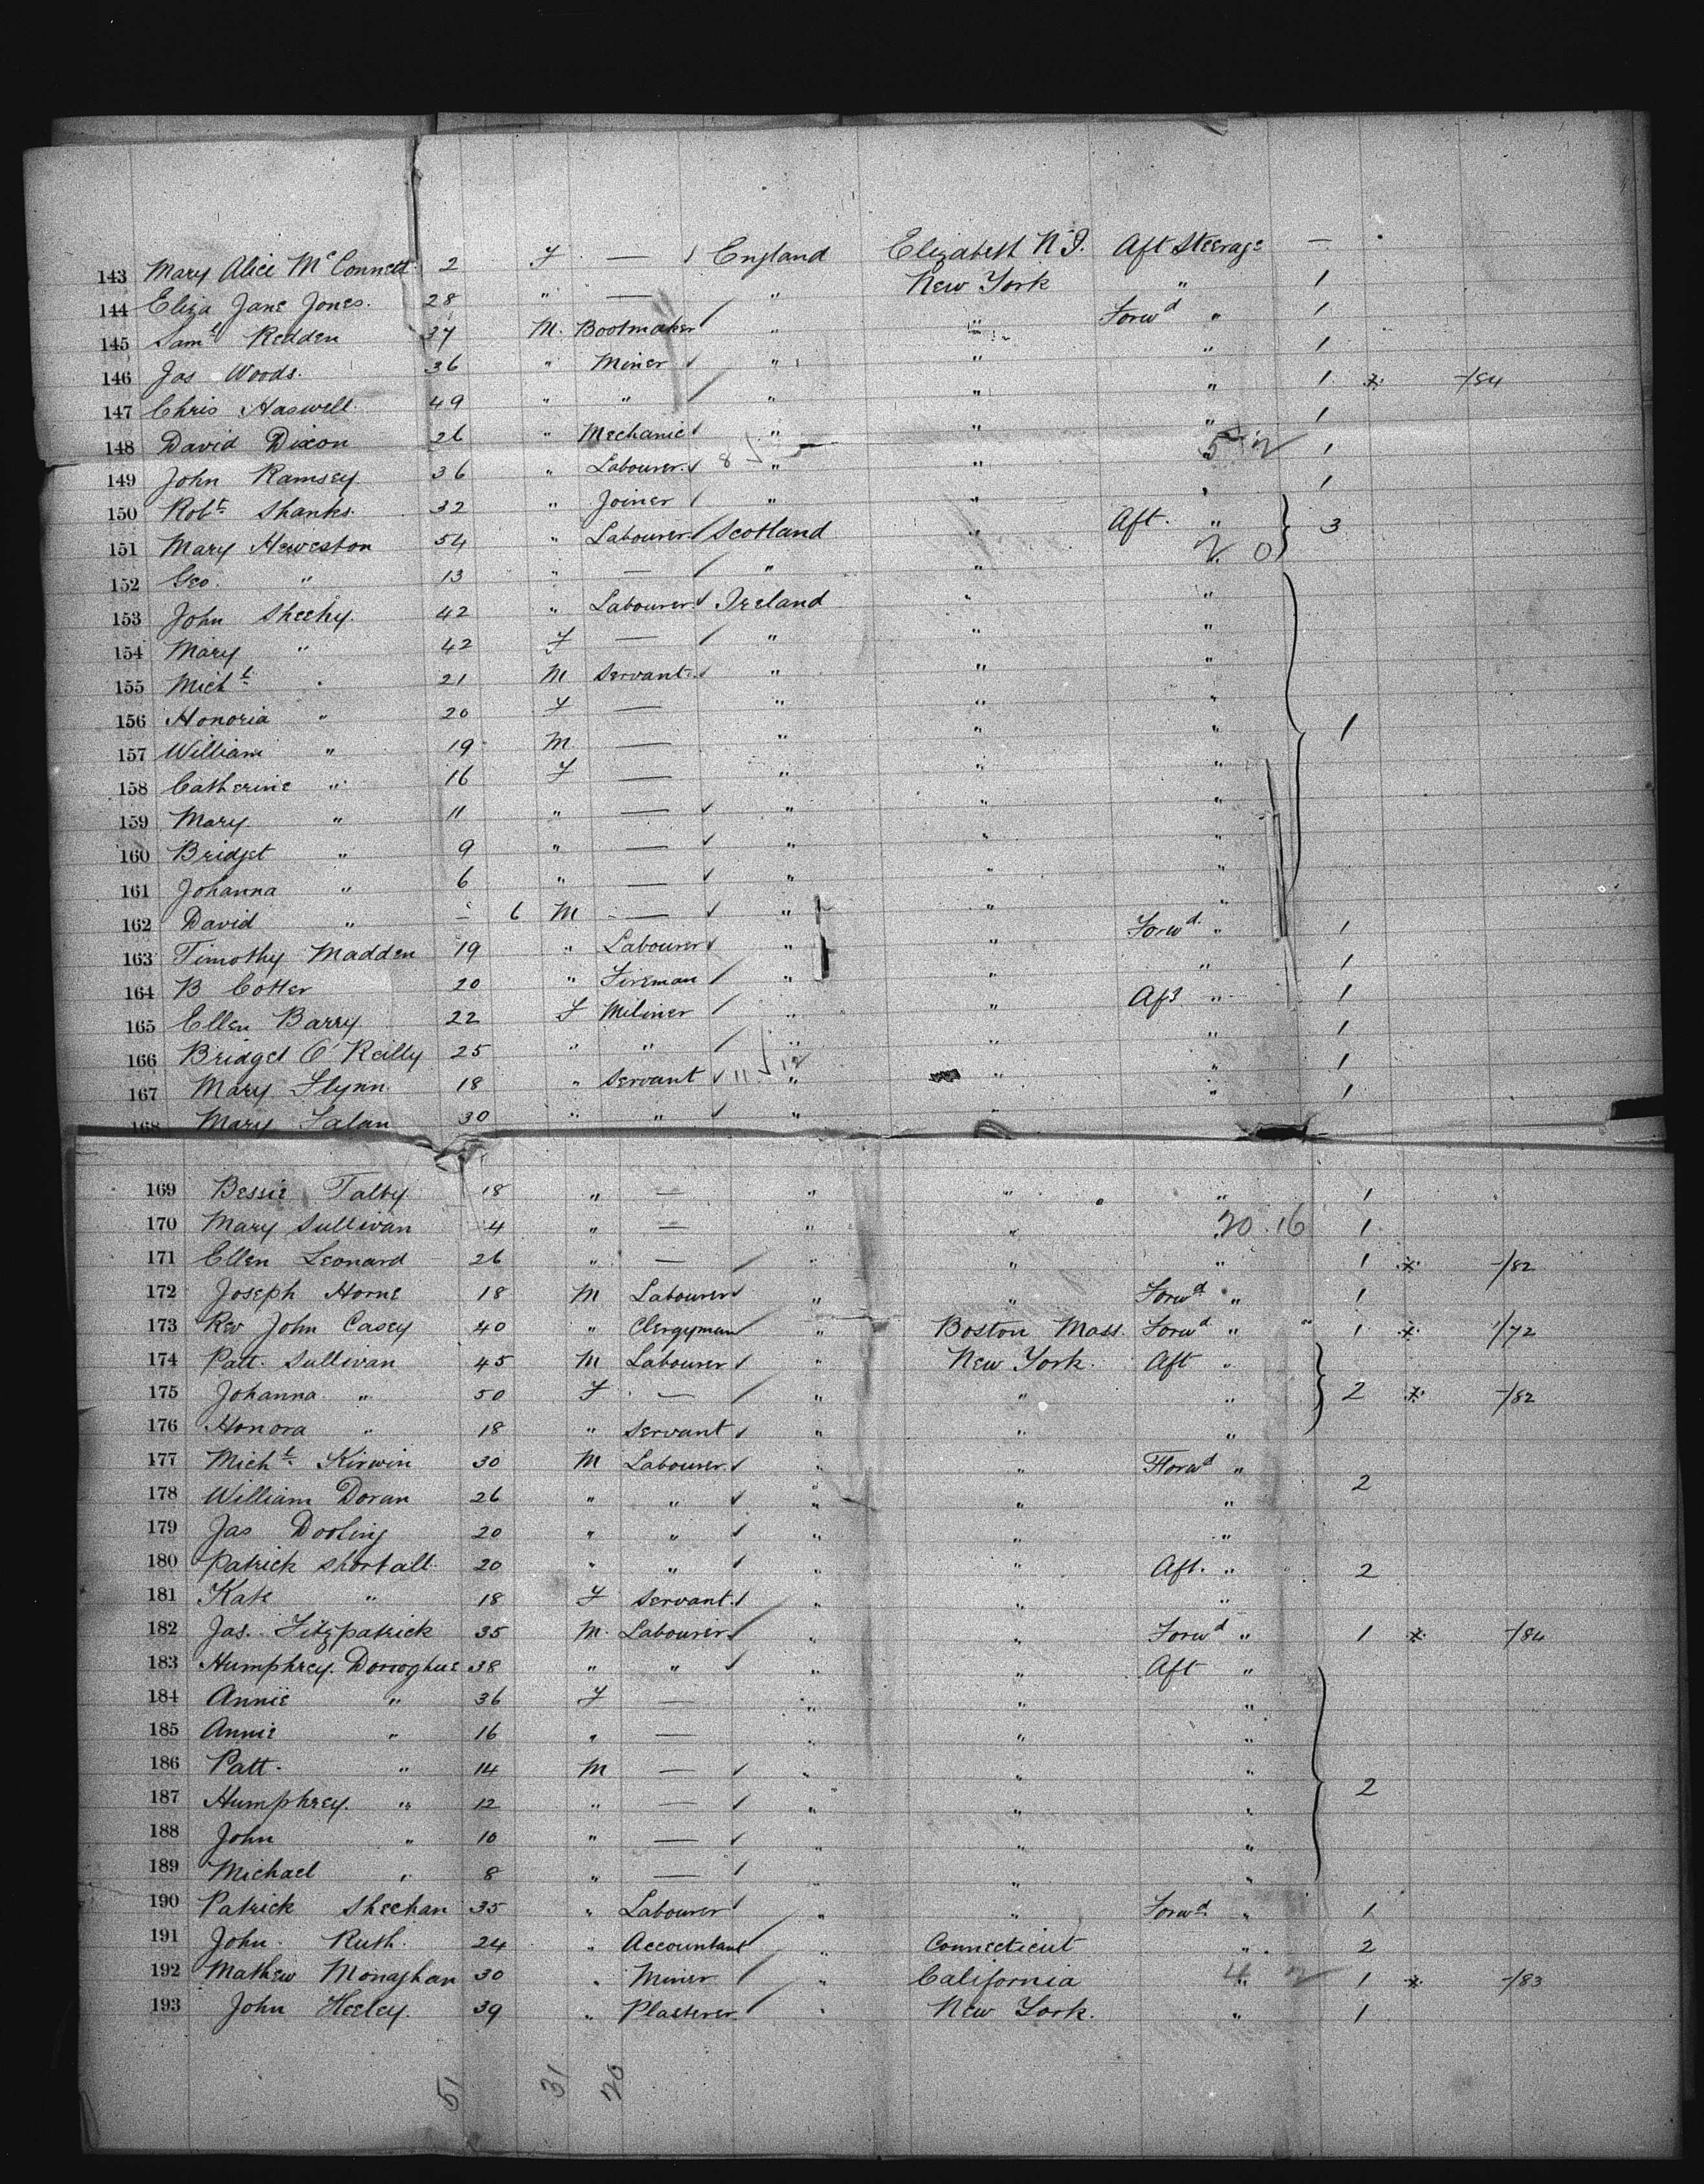 143 Mary Alice McConnell 2 F — England Elizabeth N.J. Aft Steerage —
144 Eliza Jane Jones. 28 " — " New York " 1
145 Saml Redden 37 M. Bootmaker " " Forwd " 1
146 Jas Woods. 36 " Miner " " " 1
147 Chris Haswell. 49 " " " " " 1 x /84
148 David Dixon 26 " Mechanic " " " 1
149 John Ramsey 36 " Labourer. 8 " " 5 2 1
150 Robt Shanks. 32 " Joiner " " " 1
151 Mary Heweston 54 " Labourer Scotland " Aft. " 3
152 Geo. " 13 " — " " 2 0
153 John Sheehy. 42 " Labourer Ireland " "
154 Mary " 42 F — " " "
155 Michl " 21 M Servant " " "
156 Honoria " 20 F — " " "
157 William " 19 M — " " " 1
158 Catherine " 16 F — " " "
159 Mary. " 11 " — " " "
160 Bridget " 9 " — " " "
161 Johanna " 6 " — " " "
162 David " – 6 M — " " "
163 Timothy Madden 19 " Labourer " " Forwd. " 1
164 B Cotter 20 " Fireman " " " 1
165 Ellen Barry 22 F Miliner " " Aft " 1
166 Bridget O'Reilly 25 " " " " " 1
167 Mary Flynn 18 " Servant 11 12 " " " 1
168 Mary Falan 30 " " " " " 1
169 Bessie Talby 18 " — " " " 1
170 Mary Sullivan 4 " — " " 20. 16 1
171 Ellen Leonard 26 " — " " " 1 x /82
172 Joseph Horne 18 M Labourer " " Forwd " 1
173 Rev John Casey 40 " Clergyman " Boston Mass. Forwd " 1 x 1/72
174 Patt. Sullivan 45 M Labourer " New York. Aft "
175 Johanna " 50 F — " " " 2 x /82
176 Honora " 18 " Servant " " "
177 Michl Kirwin 30 M Labourer. " " Forwd " 2
178 William Doran 26 " " " " "
179 Jas Dooling 20 " " " " "
180 Patrick Shortall. 20 " " " " Aft. " 2
181 Kate " 18 F Servant. " " "
182 Jas. Fitzpatrick 35 M. Labourer " " Forwd " 1 x /84
183 Humphrey. Donoghue 38 " " " " Aft "
184 Annie " 36 F — " " "
185 Annie " 16 " — " " "
186 Patt. " 14 M — " " "
187 Humphrey. " 12 " — " " " 2
188 John " 10 " — " " "
189 Michael " 8 " — " " "
190 Patrick Sheehan 35 " Labourer " " Forwd. " 1
191 John. Ruth. 24 " Accountant " Connecticut " 2
192 Mathew Monaghan 30 " Miner " California " 1 x /83
193 John Heeley. 39 " Plasterer " New York. " 1
51 31 20